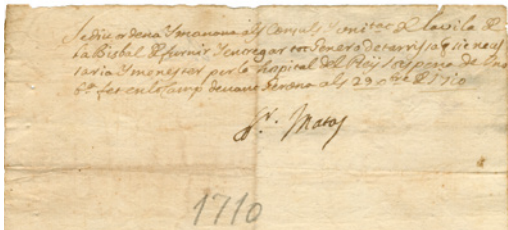 Se diu ordena y mana als Consols y unitat de la vila de
La Bisbal de furnir y entregar tot genero de terrissa que neces
saria y menester per lo hospital del Rey sots pena de
fet en lo Camp devant Gerona als 29 de 1710
Fr. Matas
1710